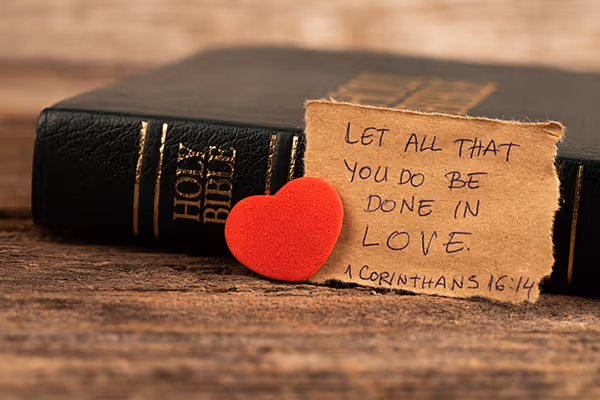 HOLY
BIBLE
LET ALL THAT
YOU DO BE
DONE IN
LOVE.
1 CORINTHANS 16:14